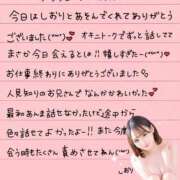 今日はしおりとあそんでくれてありがとう
ございました(*´`*)💕 オキニトークでずっと話してて
まさか今日会えるとは!!嬉しすぎたー(*´`*)💕
お仕事終わりにありがとうございました
人見知りのお兄さんでなんかかわいかった💕
最初あんま話せなかったけど途中から
色々話せてよかったよー!!また今度
会う時もたくさん責めさせてねん♡
しおり